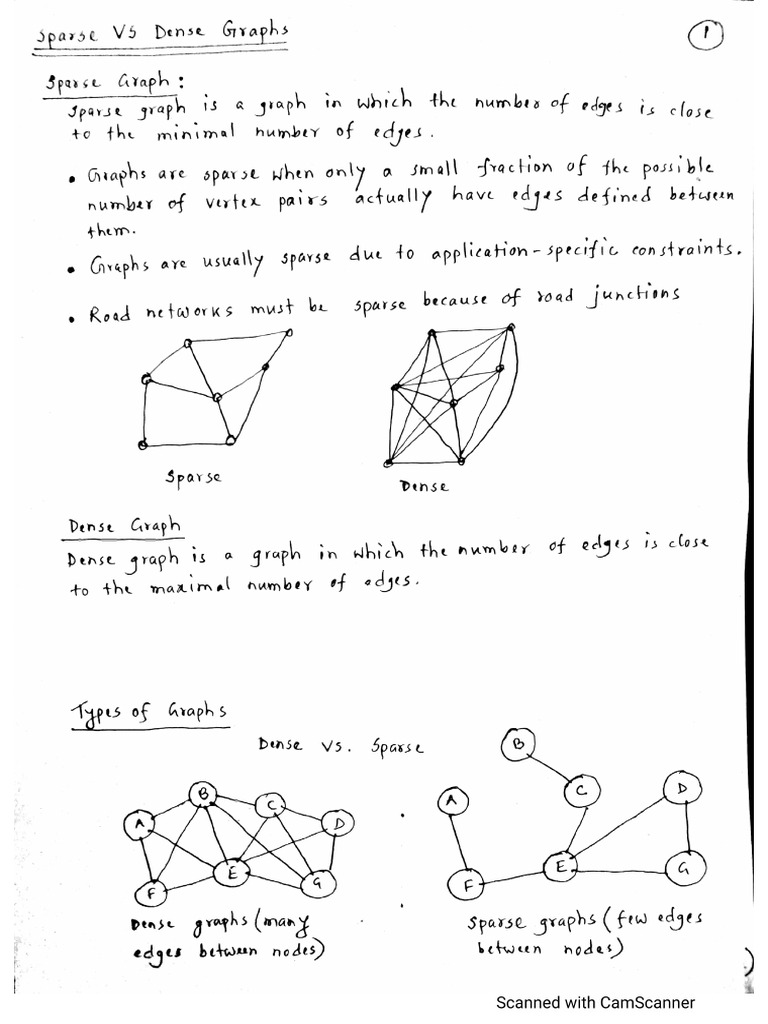 Sparse VS Dense Graphs
1
Sparse Graph:
Sparse graph is a graph in which the number of edges is close
to the minimal number of edges.
• Graphs are sparse when only a small fraction of the possible
number of vertex pairs actually have edges defined between
them.
• Graphs are usually sparse due to application-specific constraints.
• Road networks must be sparse because of road junctions
Sparse
Dense
Dense Graph
Dense graph is a graph in which the number of edges is close
to the maximal number of edges.
Types of Graphs
Dense vs. Sparse
A B C D E F G
A B C D E F G
Dense graphs (many
edges between nodes)
Sparse graphs (few edges
between nodes)
Scanned with CamScanner